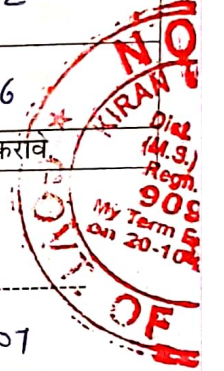 6
करावे
NO
KIRAN
Dist
(M.S.)
Regn.
909
My Term E
on 20-10
OF
07